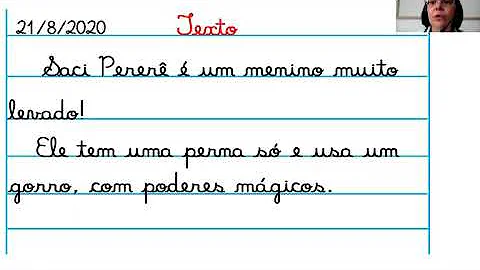 21/8/2020 Texto
Saci Pererê é um menino muito
levado!
Ele tem uma perna só e usa um
gorro, com poderes mágicos.